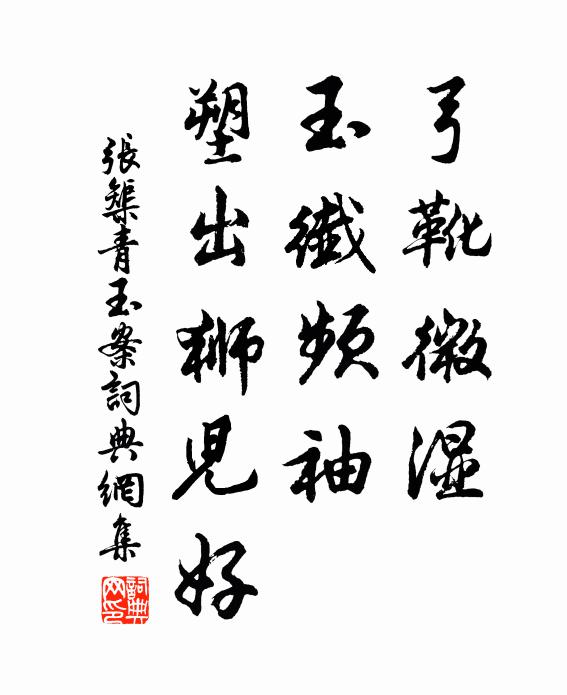 弓靴微湿
玉纖頻袖
塑出獅兒好
張榘青玉案詞典網集
詞典网印